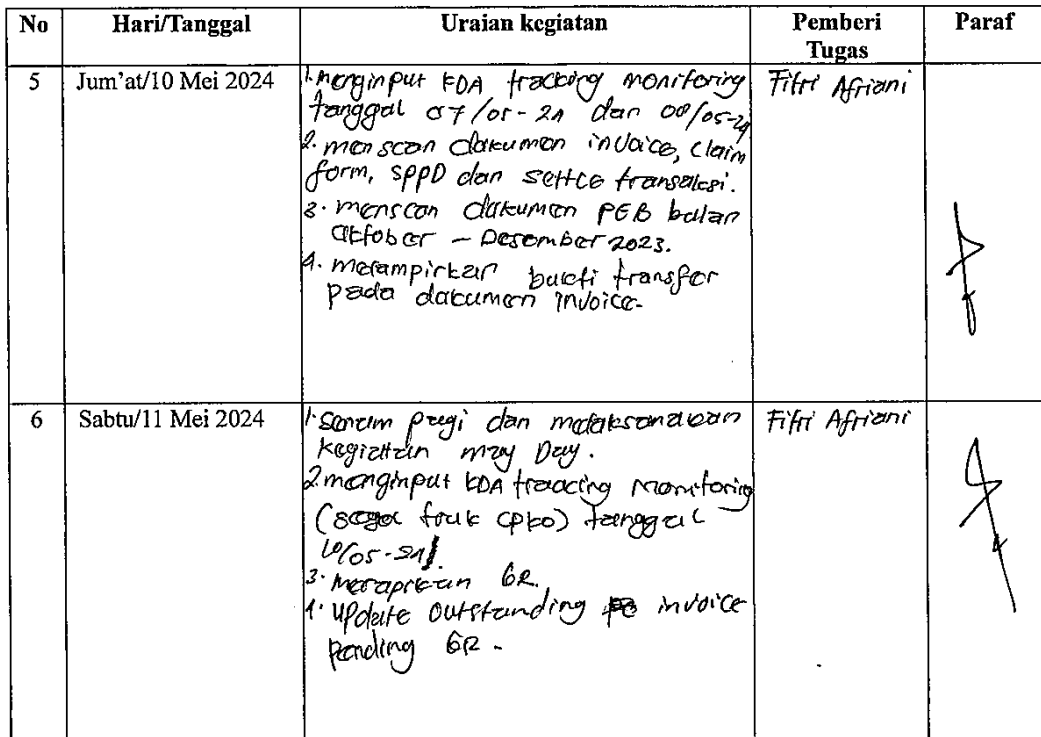 No Hari/Tanggal Uraian kegiatan Pemberi Tugas Paraf
5 Jum'at/10 Mei 2024 Fitri Afriani
1. menginput KDA tracking monitoring
tanggal 07/05-24 dan 08/05-24
2. menscan dokumen invoice, claim
form, SPPD dan settle transaksi.
3. menscan dokumen PEB bulan
Oktober - Desember 2023.
4. melampirkan bukti transfer
pada dokumen invoice.
6 Sabtu/11 Mei 2024 Fitri Afriani
1. Senam pagi dan melaksanakan
kegiatan may Day.
2. menginput KDA tracking Monitoring
(segel truk CPKO) tanggal
10/05-24
3. Merapikan GR.
4. Update Outstanding invoice
pending GR.